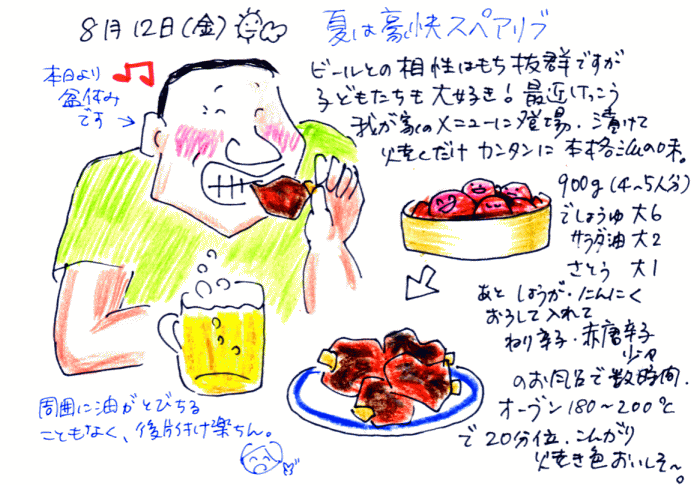 8月12日(金)
夏は豪快スペアリブ
本日より
盆休み
です
ビールとの相性はもち抜群ですが
子どもたちも大好き!最近けっこう
我が家のメニューに登場。漬けて
焼くだけカンタンに本格派の味。
900g(4〜5人分)
でしょうゆ 大6
サラダ油 大2
さとう 大1
あと しょうが・にんにく
おろして入れて
ねり辛子・赤唐辛子
少々
のお風呂で数時間.
オーブン180〜200℃
で20分位.こんがり
焼き色おいしそ〜。
周囲に油がとびちる
こともなく、後片付け楽ちん。